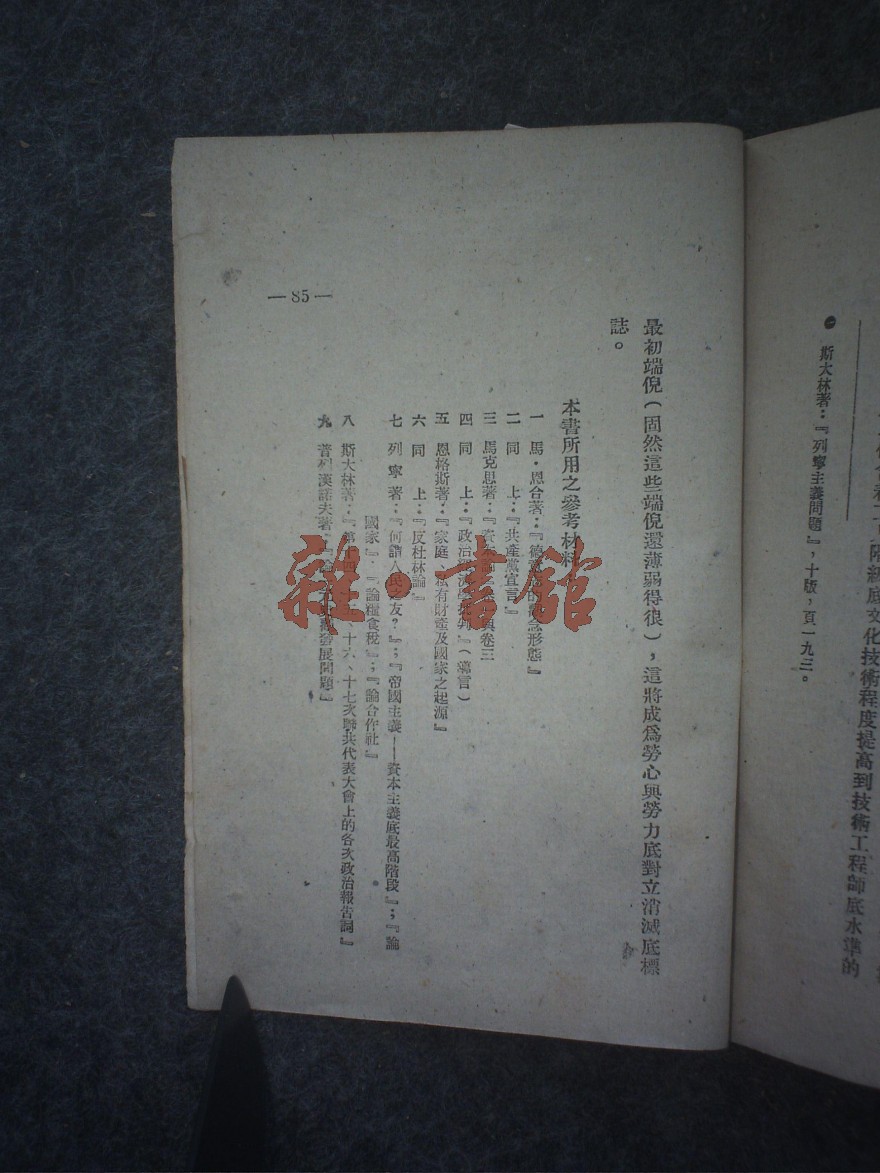 底文化技術程度提高到技術工程師底水準的
斯大林著：『列寧主義問題』，十版，頁一九三。
最初端倪（固然這些端倪還薄弱得很），這將成爲勞心與勞力底對立消滅底標
誌。
本書所用之參考材料
一 馬・恩合著：『德意志的觀念形態』
二 同 上：『共產黨宣言』
三 馬克思著：『資本論』 卷三
四 同 上：『政治經濟學批判』（導言）
五 恩格斯著：『家庭、私有財產及國家之起源』
六 同 上：『反杜林論』
七 列寧著：『何謂人民之友？』；『帝國主義——資本主義底最高階段』；『論
國家』・『論糧食稅』；『論合作社』
八 斯大林著：『第十四、十六、十七次聯共代表大會上的各次政治報告詞』
九 普列漢諾夫著 發展問題』
— 85 —
雜・書館